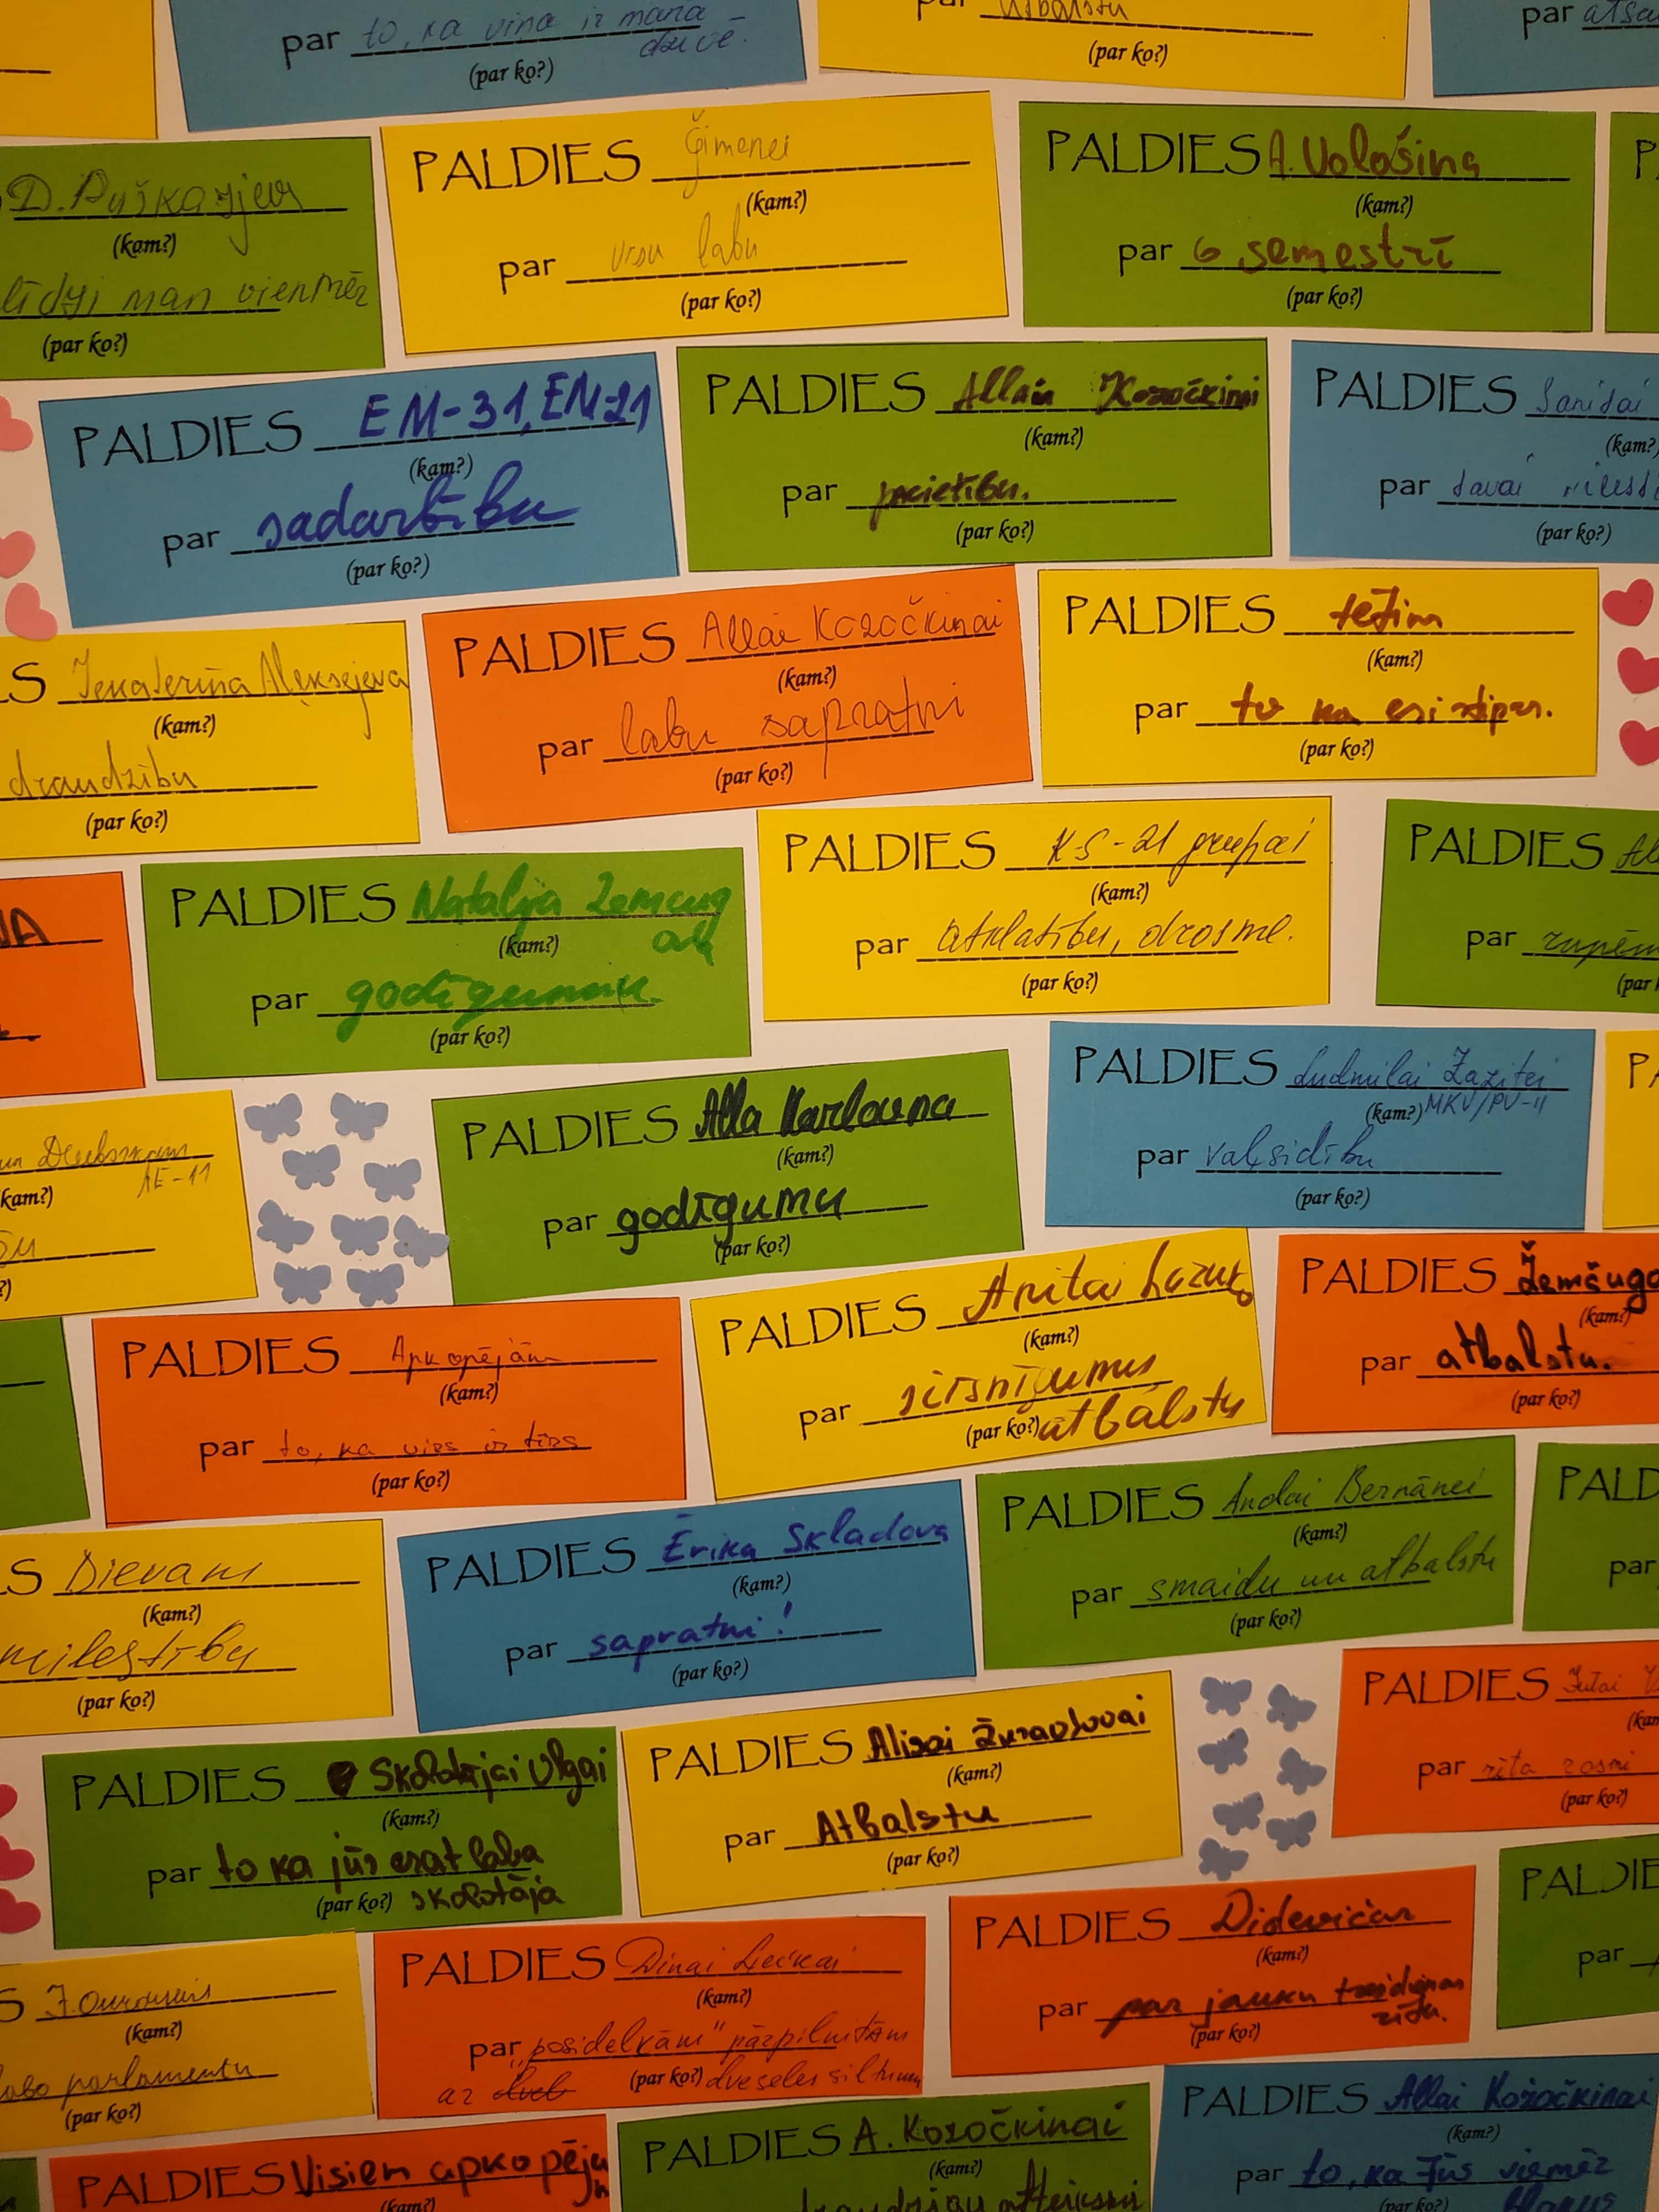 par to, ka viņa ir mana
dzīvē.
(par ko?)
par atbalstu
(par ko?)
par
D. Puškarjevs
(kam?)
līdzi man vienmēr
(par ko?)
PALDIES Ģimenei
(kam?)
par visu labu
(par ko?)
PALDIES A. Vološina
(kam?)
par 6 semestrī
(par ko?)
PALDIES EM-31, EM-21
(kam?)
par sadarbību
(par ko?)
PALDIES Allai Kozočkinai
(kam?)
par pacietību.
(par ko?)
PALDIES Sanidai
(kam?)
par tavai
(par ko?)
S Jekaterina Aleksejeva
(kam?)
draudzību
(par ko?)
PALDIES Allai Kozočkinai
(kam?)
par labu sapratni
(par ko?)
PALDIES tētim
(kam?)
par to ka esi stiprs.
(par ko?)
PALDIES Natalija Zemcug
ai
(kam?)
par godīgumu.
(par ko?)
PALDIES KS-21 grupai
(kam?)
par atklātību, drosmi.
(par ko?)
PALDIES Al
par rūpēm
(par
AE-11
kam?)
PALDIES Alla Karlovna
(kam?)
par godīgumu
(par ko?)
PALDIES Ludmilai Zazitei
(kam?) MKV/PV-11
par vaļsidību
(par ko?)
PALDIES Apkopējām
(kam?)
par to, ka viss ir tīrs
(par ko?)
PALDIES Anitai Lazuko
(kam?)
par sirsnīgumus
(par ko?) atbalstu
PALDIES Žemčuga
(kam?)
par atbalstu.
(par ko?)
S Dievam
(kam?)
mīlestību
(par ko?)
PALDIES Ērika Skladova
(kam?)
par sapratni!
(par ko?)
PALDIES Andai Bernānei
(kam?)
par smaidu un atbalstu
(par ko?)
PALD
par
PALDIES Skolotājai Olgai
(kam?)
par to ka jūs esat laba
(par ko?) skolotāja
PALDIES Alisai Žuravļovai
(kam?)
par Atbalstu
(par ko?)
PALDIES Jutai
par rīta rosmi
(par ko?)
S
(kam?)
labo parlamentu
(par ko?)
PALDIES Dinai Lečkai
(kam?)
par „posidelkām" pārpilnītām
ar (par ko?) dveseles siltumu
PALDIES Didevičas
(kam?)
par par jauku trešdienas
rītu.
(par ko?)
PALDIE
par
PALDIES Visiem apkopēju
(kam?)
PALDIES A. Kozočkinai
(kam?)
draudzīgu attieksmi
PALDIES Allai Kozočkinai
(kam?)
par to, ka Jūs viemēr
(par ko?)